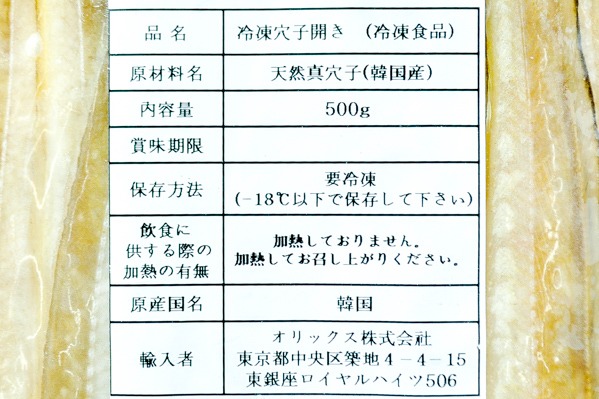 品名 冷凍穴子開き (冷凍食品)
原材料名 天然真穴子(韓国産)
内容量 500g
賞味期限
保存方法 要冷凍
(-18℃以下で保存して下さい)
飲食に
供する際の
加熱の有無
加熱しておりません。
加熱してお召し上がりください。
原産国名 韓国
輸入者
オリックス株式会社
東京都中央区築地4-4-15
東銀座ロイヤルハイツ506